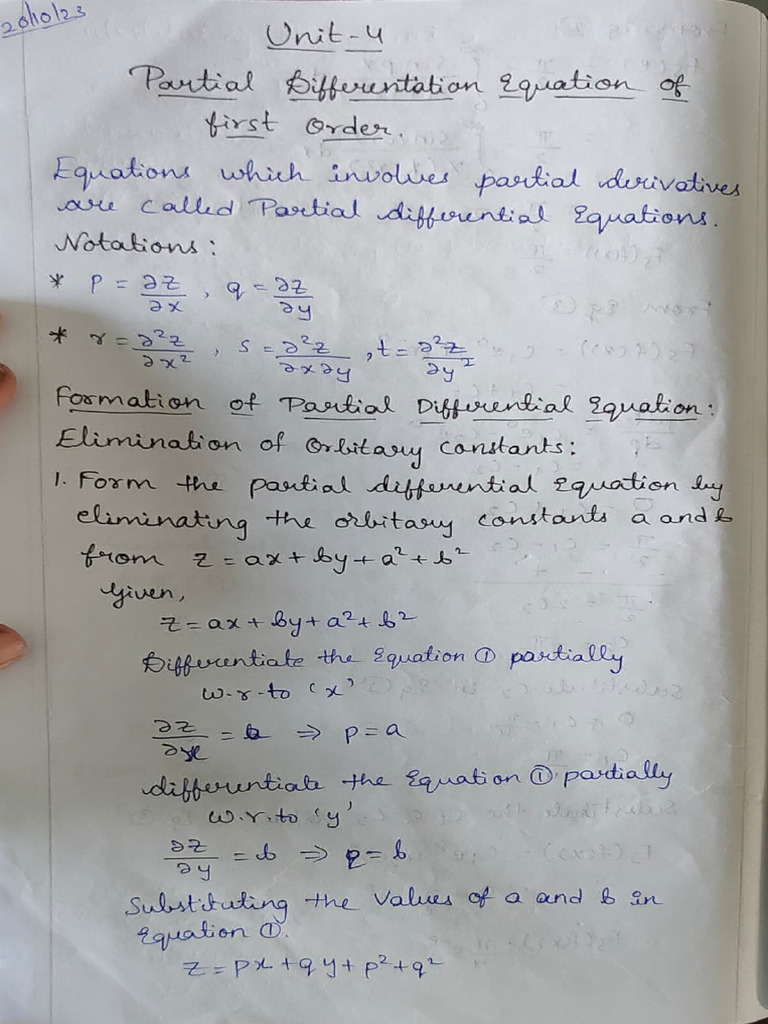 20/10/23
Unit-4
Partial Differentation Equation of
first Order.
Equations which involves partial derivatives
are called Partial differential Equations.
Notations:
* p = ∂z/∂x , q = ∂z/∂y
* r = ∂²z/∂x² , s = ∂²z/∂x∂y , t = ∂²z/∂y²
Formation of Partial Differential Equation:
Elimination of Orbitary constants:
1. Form the partial differential Equation by
eliminating the orbitary constants a and b
from z = ax + by + a² + b²
Given,
z = ax + by + a² + b²
Differentiate the Equation ① partially
w.r.to 'x'
∂z/∂x = a ⇒ p = a
differentiate the Equation ① partially
w.r.to 'y'
∂z/∂y = b ⇒ q = b
Substituting the values of a and b in
Equation ①.
z = px + qy + p² + q²